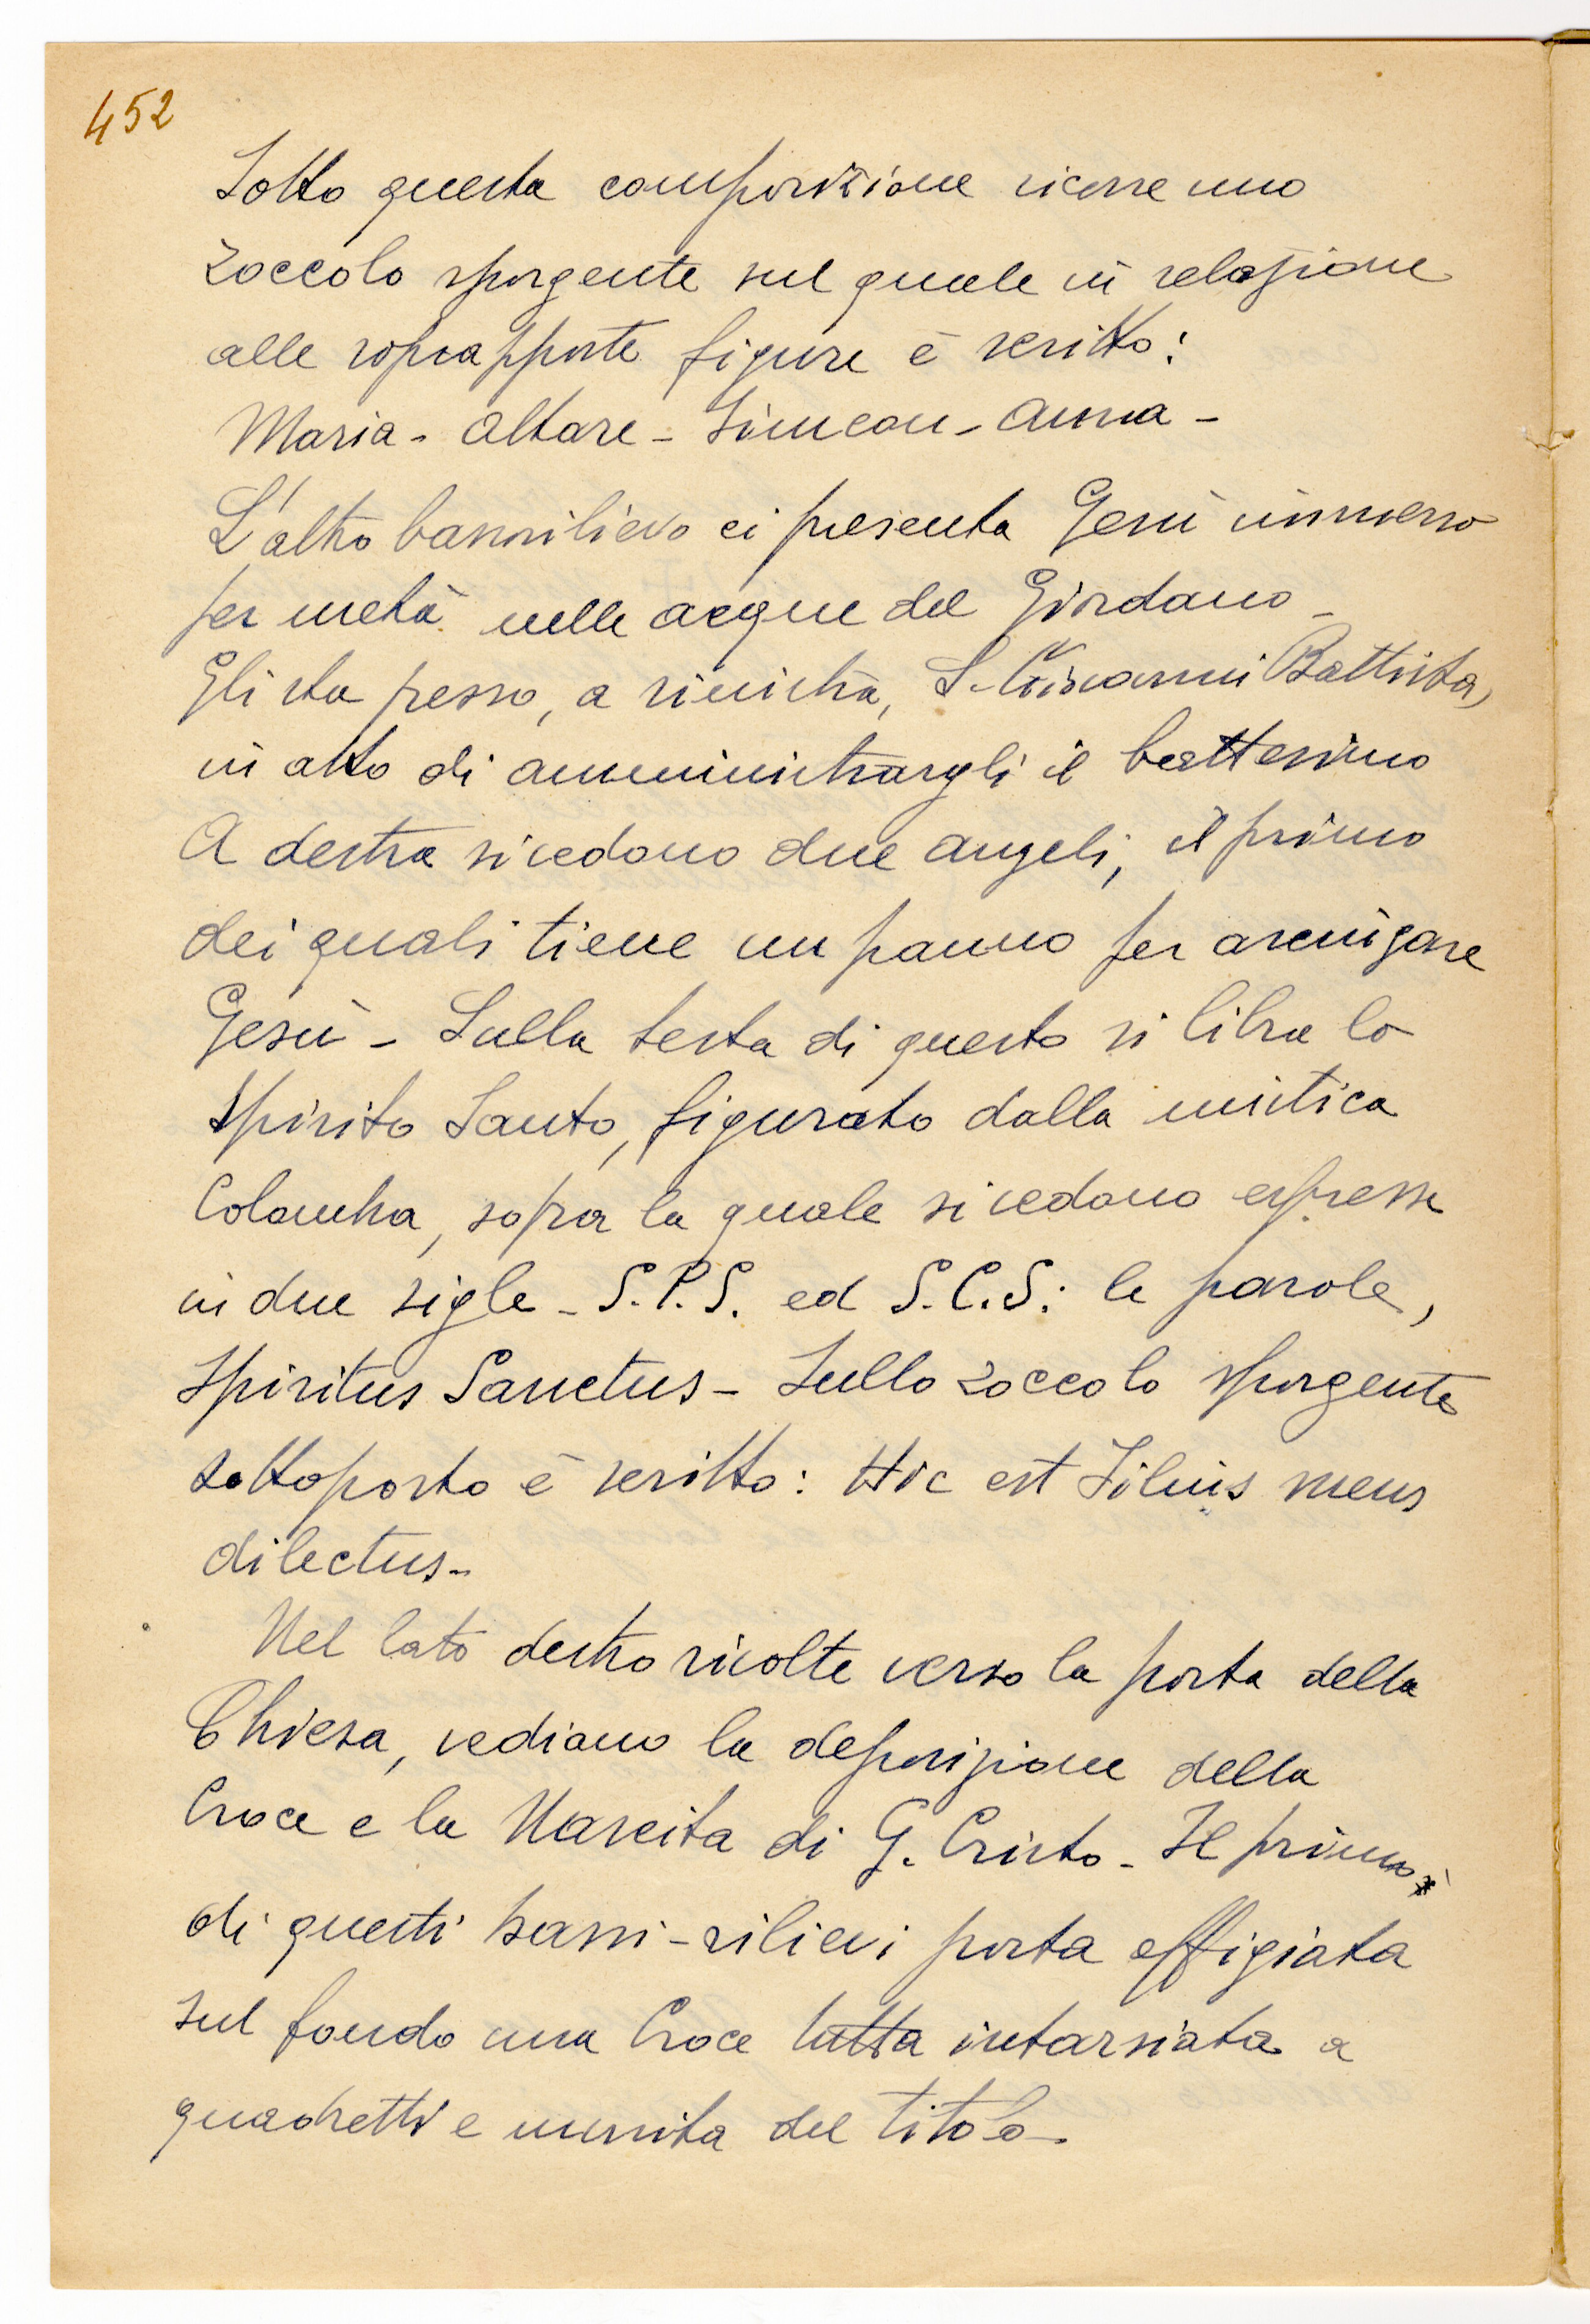 452
Sotto questa composizione ricorre uno
zoccolo sporgente sul quale in relazione
alle soprapposte figure è scritto:
Maria - Altare - Simeon - Anna -
L'altro bassorilievo ci presenta Gesù immerso
per metà nelle acque del Giordano -
Gli sta presso, a sinistra, S. Giovanni Battista,
in atto di amministrargli il battesimo
A destra si vedono due angeli, il primo
dei quali tiene un panno per asciugare
Gesù - Sulla testa di questo si libra lo
Spirito Santo, figurato dalla mistica
Colomba, sopra la quale si vedono espresse
in due sigle - S.P.S. ed S.C.S: le parole,
Spiritus Sanctus - Sullo zoccolo sporgente
sottoposto è scritto: Hic est Filius meus
dilectus -
Nel lato destro rivolte verso la porta della
Chiesa, vediamo la deposizione della
Croce e la Nascita di G. Cristo - Il primo
di questi bassi-rilievi porta effigiata
sul fondo una Croce tutta intarsiata a
quadretti e munita del titolo -